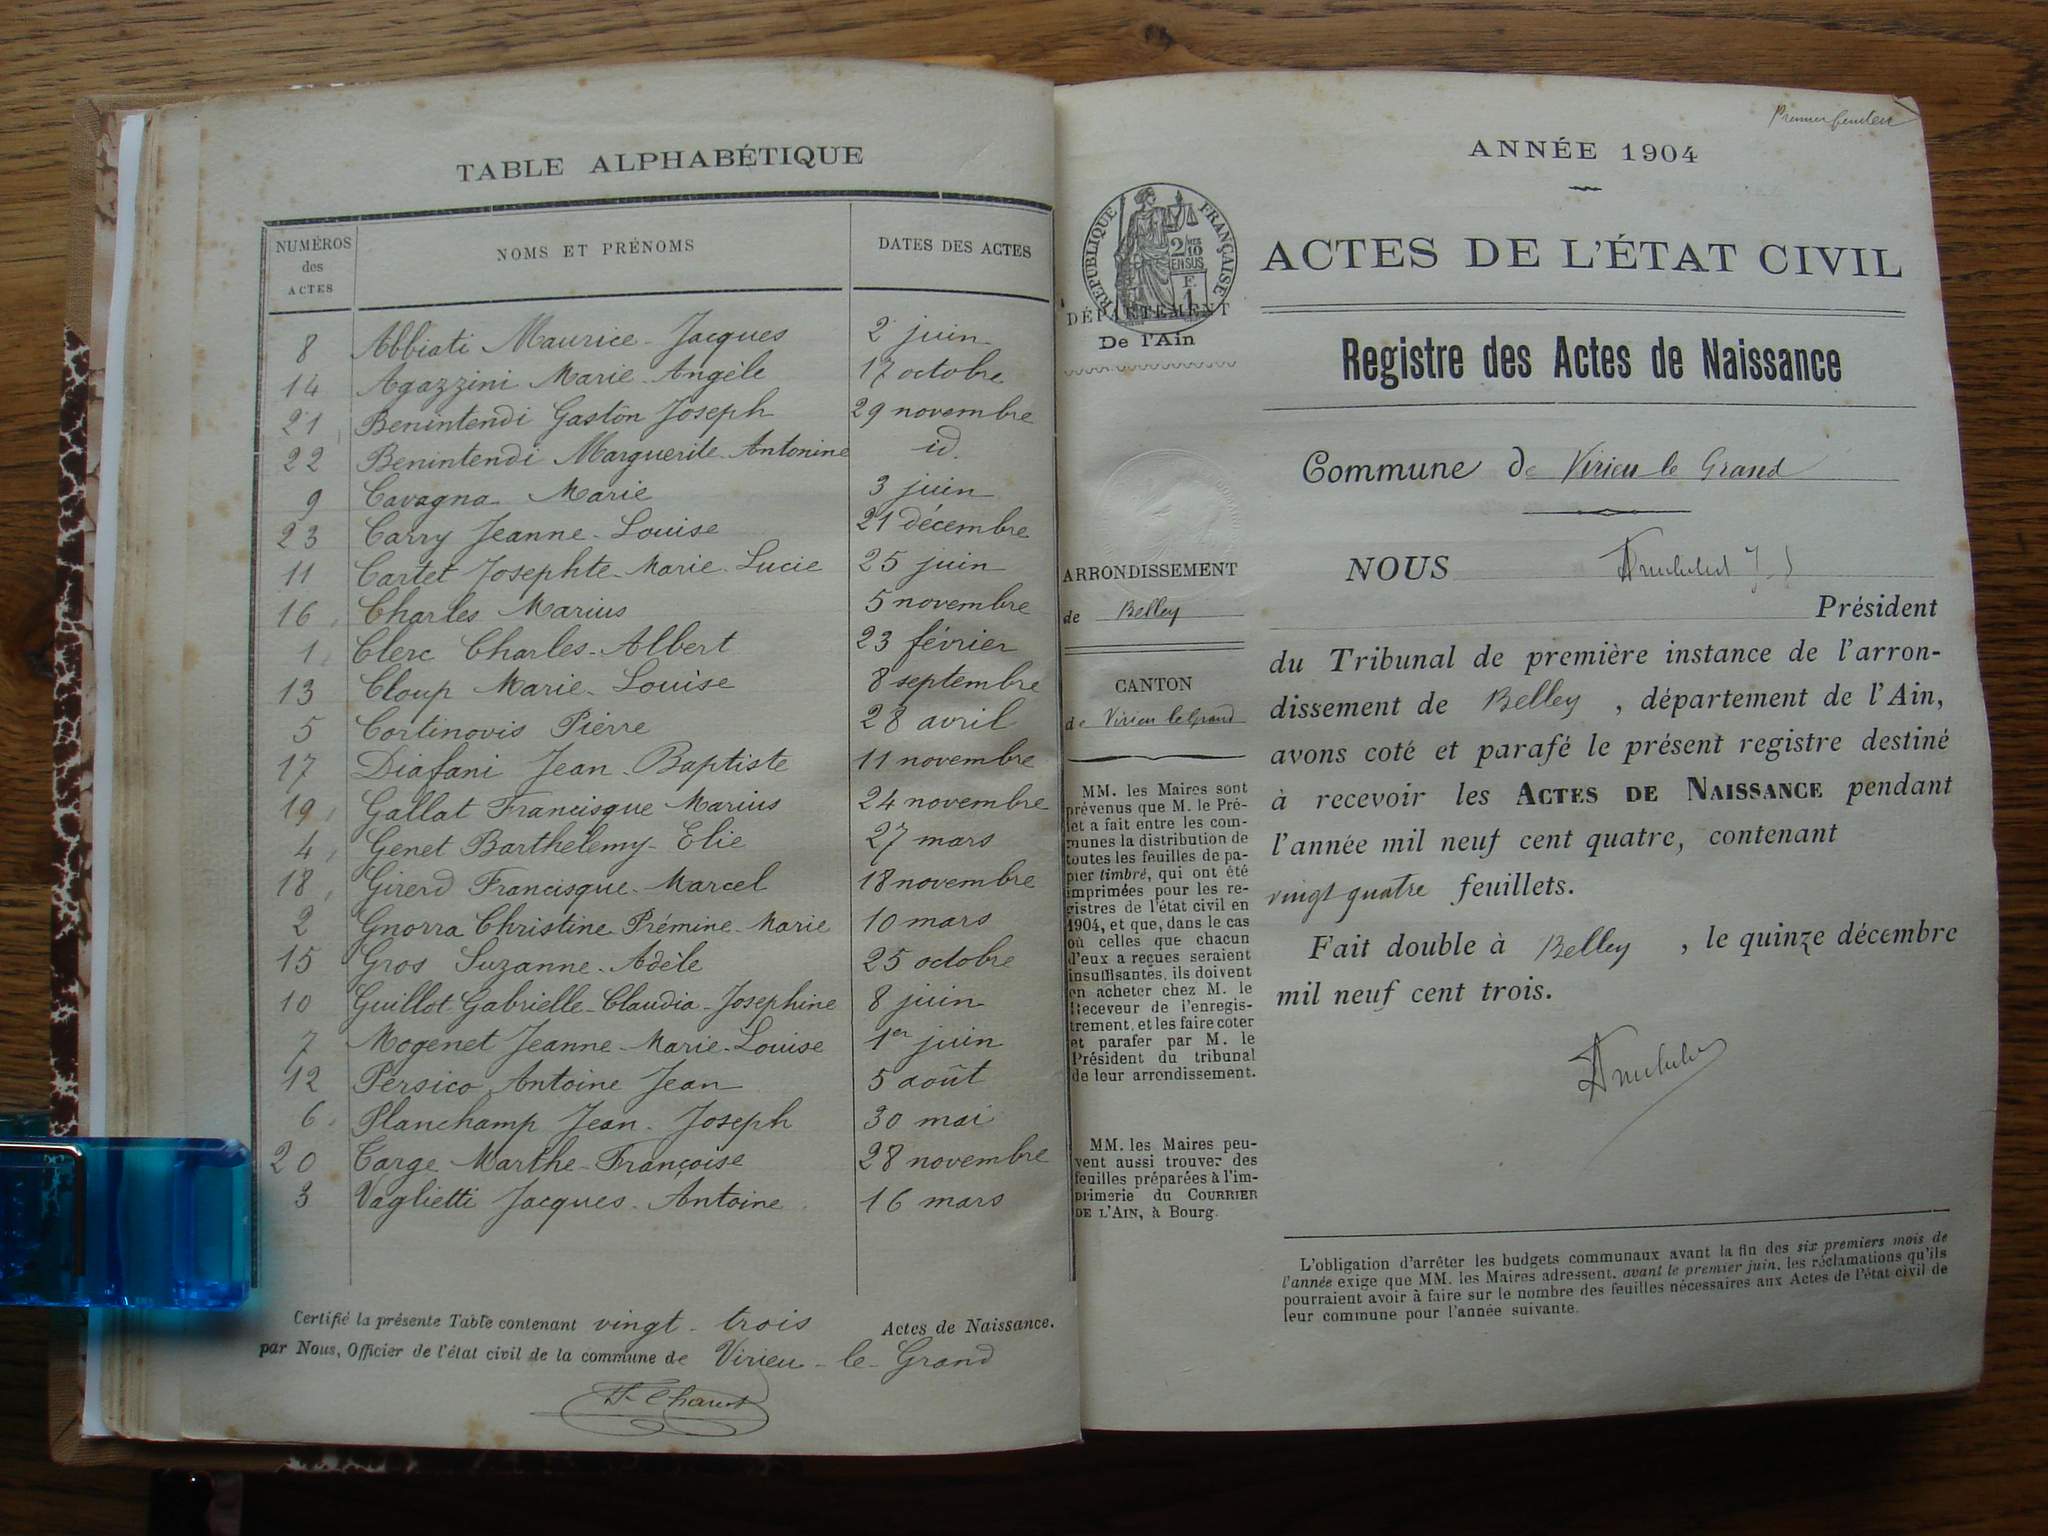 TABLE ALPHABÉTIQUE
NUMÉROS des ACTES
NOMS ET PRÉNOMS
DATES DES ACTES
8 Abbiati Maurice-Jacques 2 juin
14 Agazzini Marie Angèle 17 octobre
21 Benintendi Gaston Joseph 29 novembre
22 Benintendi Marguerite-Antonine id.
9 Cavagna Marie 3 juin
23 Carry Jeanne-Louise 21 décembre
11 Cartet Josephte-Marie-Lucie 25 juin
16 Charles Marius 5 novembre
1 Clerc Charles-Albert 23 février
13 Cloup Marie-Louise 8 septembre
5 Cortinovis Pierre 28 avril
17 Diafani Jean-Baptiste 11 novembre
19 Gallat Francisque Marius 24 novembre
4 Genet Barthélemy-Elie 27 mars
18 Girerd Francisque-Marcel 18 novembre
2 Gnorra Christine Prémine-Marie 10 mars
15 Gros Suzanne-Adèle 25 octobre
10 Guillot Gabrielle-Claudia-Josephine 8 juin
7 Mogenet Jeanne-Marie-Louise 1er juin
12 Persico Antoine Jean 5 août
6 Planchamp Jean-Joseph 30 mai
20 Targe Marthe-Françoise 28 novembre
3 Vaglietti Jacques-Antoine 16 mars
Certifié la présente Table contenant vingt-trois Actes de Naissance.
par Nous, Officier de l'état civil de la commune de Virieu-le-Grand
Premier
ANNÉE 1904
RÉPUBLIQUE FRANÇAISE
2/10 EN SUS
F. 1
ACTES DE L'ÉTAT CIVIL
DÉPARTEMENT
De l'Ain
Registre des Actes de Naissance
Commune de Virieu le Grand
ARRONDISSEMENT
de Belley
CANTON
de Virieu le Grand
MM. les Maires sont
prévenus que M. le Pré-
fet a fait entre les com-
munes la distribution de
toutes les feuilles de pa-
pier timbré, qui ont été
imprimées pour les re-
gistres de l'état civil en
1904, et que, dans le cas
où celles que chacun
d'eux a reçues seraient
insuffisantes, ils doivent
en acheter chez M. le
Receveur de l'enregis-
trement, et les faire coter
et parafer par M. le
Président du tribunal
de leur arrondissement.
MM. les Maires peu-
vent aussi trouver des
feuilles préparées à l'im-
primerie du COURRIER
DE L'AIN, à Bourg.
NOUS
Président
du Tribunal de première instance de l'arron-
dissement de Belley, département de l'Ain,
avons coté et parafé le présent registre destiné
à recevoir les ACTES DE NAISSANCE pendant
l'année mil neuf cent quatre, contenant
vingt quatre feuillets.
Fait double à Belley, le quinze décembre
mil neuf cent trois.
L'obligation d'arrêter les budgets communaux avant la fin des six premiers mois de
l'année exige que MM. les Maires adressent, avant le premier juin, les réclamations qu'ils
pourraient avoir à faire sur le nombre des feuilles nécessaires aux Actes de l'état civil de
leur commune pour l'année suivante.